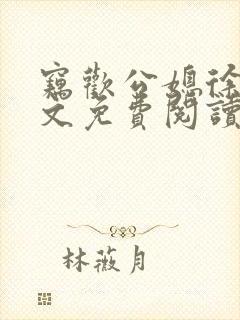 竊歡公媳徐
文免費閱讀
林薇月